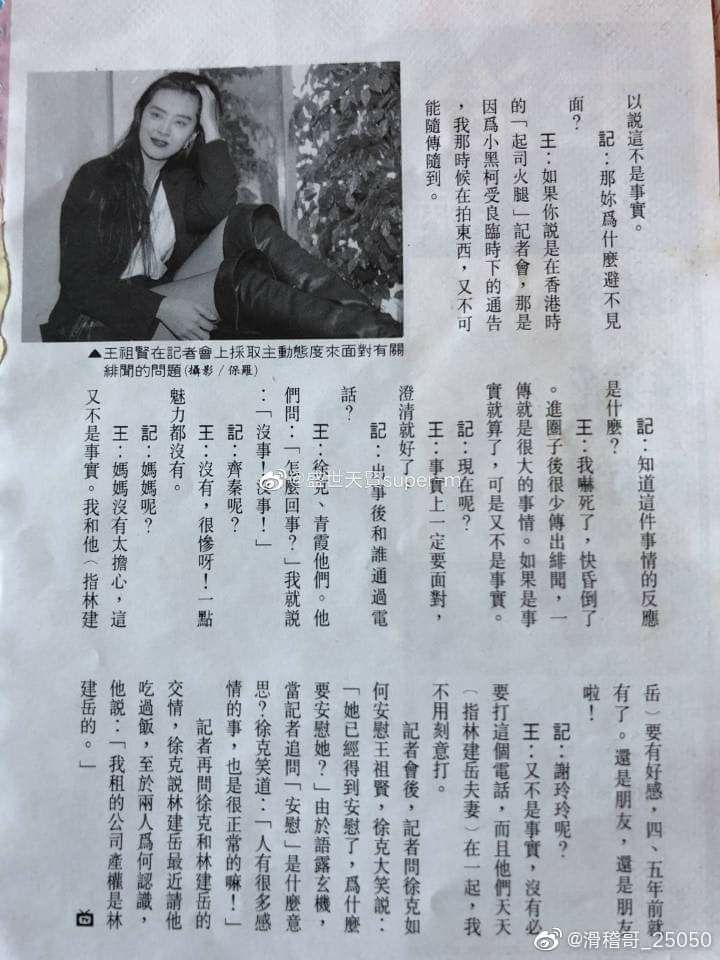 以説這不是事實。
記：那妳爲什麽避不見
面？
王：如果你説是在香港時
的「起司火腿」記者會，那是
因爲小黑柯受良臨時下的通告
，我那時候在拍東西，又不可
能隨傳隨到。
▲王祖賢在記者會上採取主動態度來面對有關
緋聞的問題(攝影/保羅)
記：知道這件事情的反應
是什麽？
王：我嚇死了，快昏倒了
。進圈子後很少傳出緋聞，一
傳就是很大的事情。如果是事
實就算了，可是又不是事實。
記：現在呢？
王：事實上一定要面對，
澄清就好了
記：出事後和誰通過電
話？
王：徐克、青霞他們。他
們問：「怎麽回事？」我就説
：「沒事！沒事！」
記：齊秦呢？
王：沒有，很慘呀！一點
魅力都沒有。
記：媽媽呢？
王：媽媽沒有太擔心，這
又不是事實。我和他（指林建
岳）要有好感，四、五年前就
有了。還是朋友，還是朋友
啦！
記：謝玲玲呢？
王：又不是事實，沒有必
要打這個電話，而且他們天天
（指林建岳夫妻）在一起，我
不用刻意打。
記者會後，記者問徐克如
何安慰王祖賢，徐克大笑説：
「她已經得到安慰了，爲什麽
要安慰她？」由於語露玄機，
當記者追問「安慰」是什麽意
思？徐克笑道：「人有很多感
情的事，也是很正常的嘛！」
記者再問徐克和林建岳的
交情，徐克説林建岳最近請他
吃過飯，至於兩人爲何認識，
他説：「我租的公司產權是林
建岳的。」
@盛世天賢super-m
@滑稽哥_25050